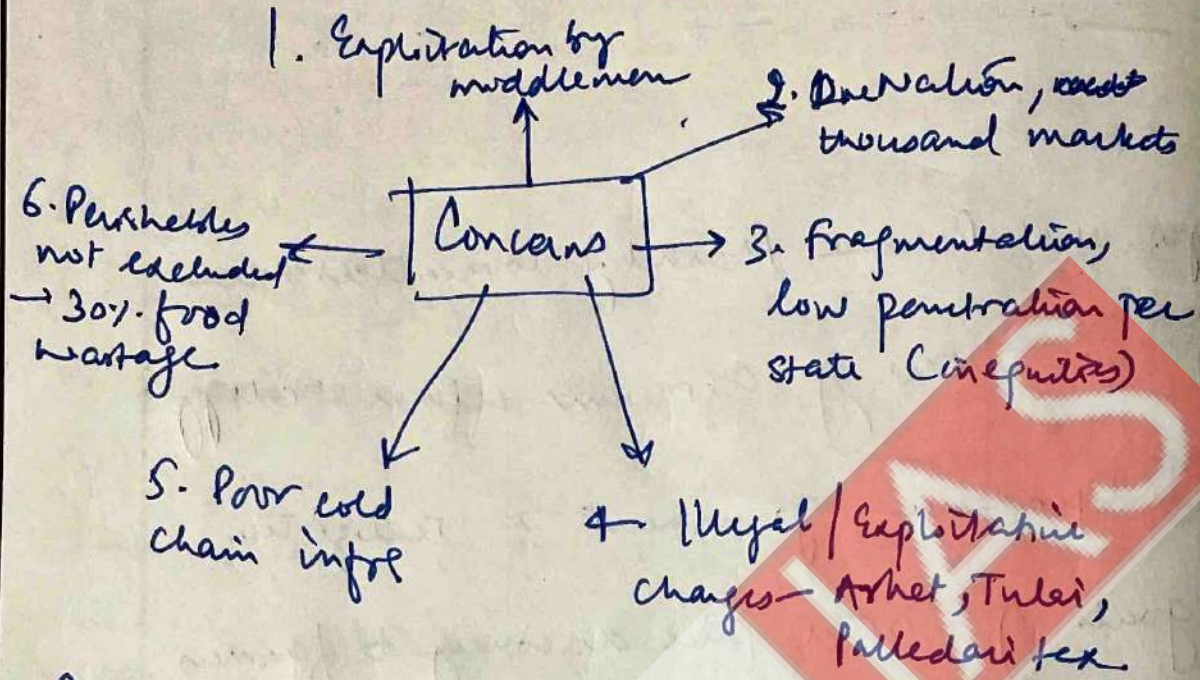 1. Exploitation by
middlemen
2. One Nation,
thousand markets
Concerns
3. Fragmentation,
low penetration per
state (inequities)
4 Illegal / Exploitative
charges - Arhat, Tulai,
Palledari tax
5. Poor cold
chain infra
6. Perishables
not excluded
→ 30% food
wastage
IAS